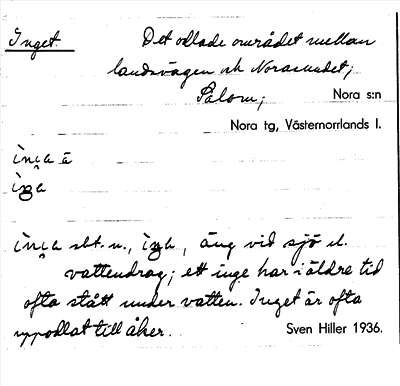 Inget.
Det odlade området mellan
landsvägen och Norasundet;
Salom; Nora s:n
Nora tg, Västernorrlands l.
sbt. n., äng vid sjö el.
vattendrag; ett inge har i äldre tid
ofta stått under vatten. Inget är ofta
uppodlat till åker. Sven Hiller 1936.